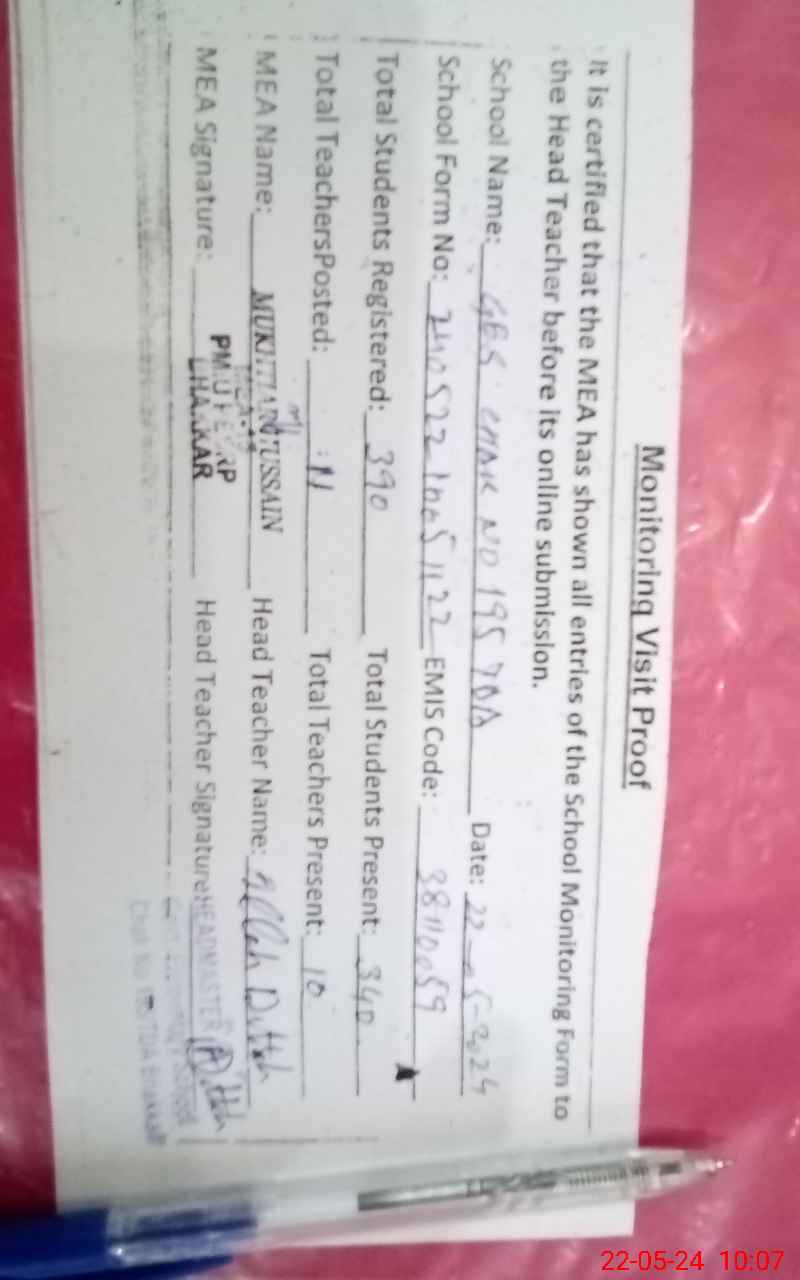 Monitoring Visit Proof
It is certified that the MEA has shown all entries of the School Monitoring Form to
the Head Teacher before its online submission.
School Name: GES CHAK NO 195 TDA Date: 22-05-2024
School Form No: 24052210051122 EMIS Code: 38110059
Total Students Registered: 390 Total Students Present: 340
Total TeachersPosted: 11 Total Teachers Present: 10
MEA Name: MUKHTIAR HUSSAIN Head Teacher Name: Allah Dittah
MEA Signature: Head Teacher Signature HEADMASTER
BHAKKAR
22-05-24 10:07